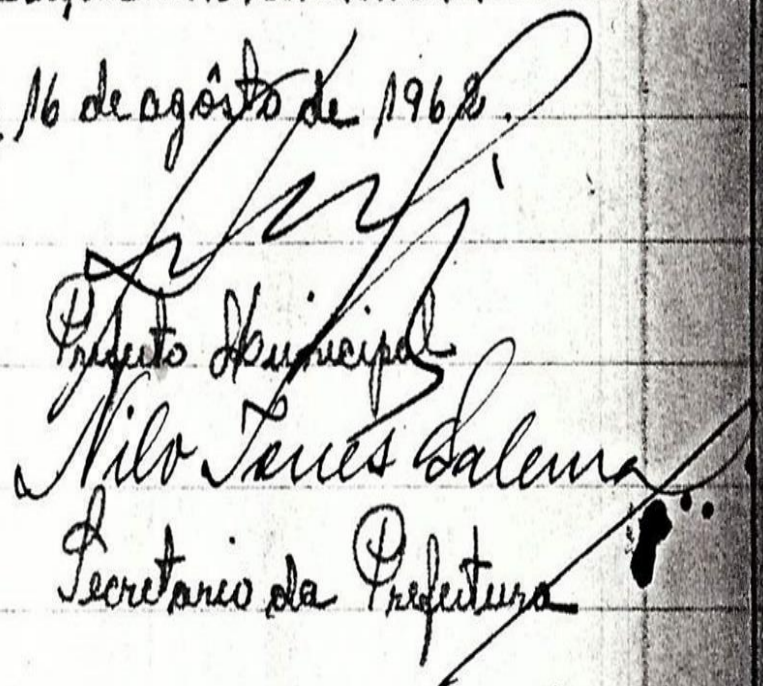 16 de agôsto de 1962.
Prefeito Municipal
Nilo Torres Salema
Secretario da Prefeitura